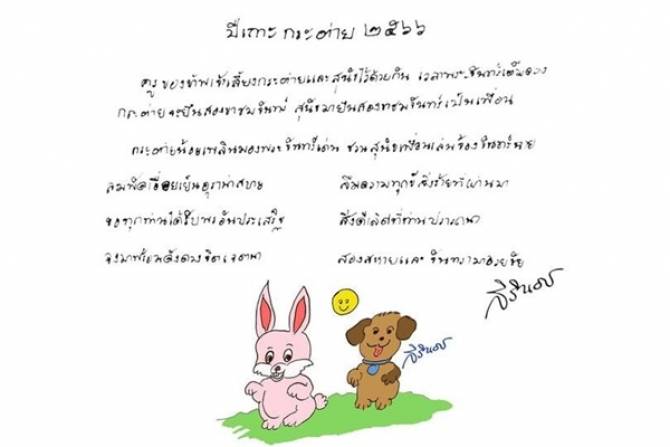 ปีเถาะ กระต่าย ๒๕๖๖
ครูของข้าพเจ้าเลี้ยงกระต่ายและสุนัขไว้ด้วยกัน เวลาพระจันทร์เต็มดวง
กระต่ายจะยืนสองขาชมจันทร์ สุนัขมายืนสองขาชมจันทร์เป็นเพื่อน
กระต่ายน้อยเพลินมองพระจันทร์เด่น ชวนสุนัขเพื่อนเล่นจ้องจันทร์ฉาย
ลมพัดเรื่อยเย็นอุราพาสบาย ลืมความทุกข์สิ่งร้ายที่ผ่านมา
ขอทุกท่านได้รับพรอันประเสริฐ สิ่งดีเลิศที่ท่านปรารถนา
จงมาพร้อมดั่งดวงจิตเจตนา สองสหายและจันทรามาอวยชัย
สิรินธร
สิรินธร